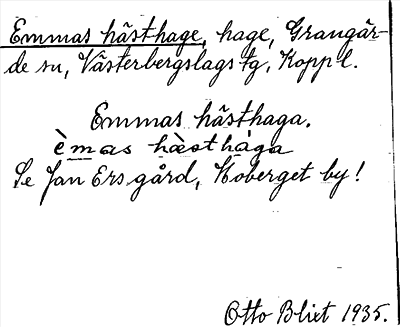 Emmas hästhage, hage, Grangär-
de sn, Västerbergslags tg, Koppl.
Emmas hästhaga.
èmas hæsthàga
Se Jan Ers gård, Koberget by!
Otto Blixt 1935.